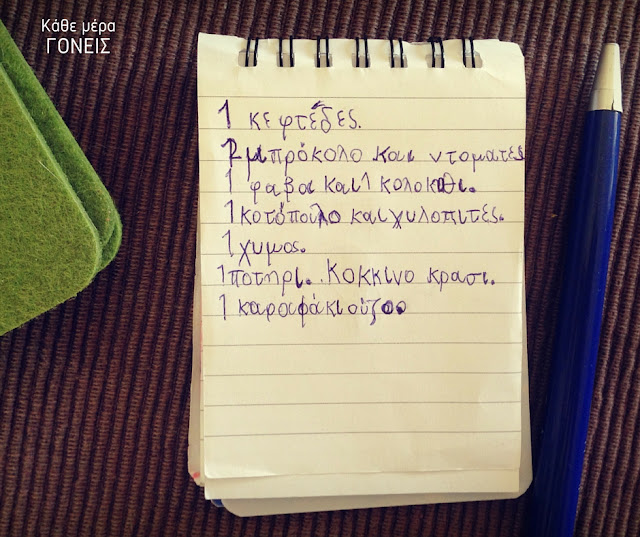 Κάθε μέρα
ΓΟΝΕΙΣ
1 κεφτέδες.
1 μπρόκολο και ντοματες
1 φαβα και 1 κολοκαθι.
1 κοτόπουλο και χυλοπιτές.
1 χυμος.
1 ποτηρι.. Κοκκινο κρασι.
1 καραφάκι ούζοο